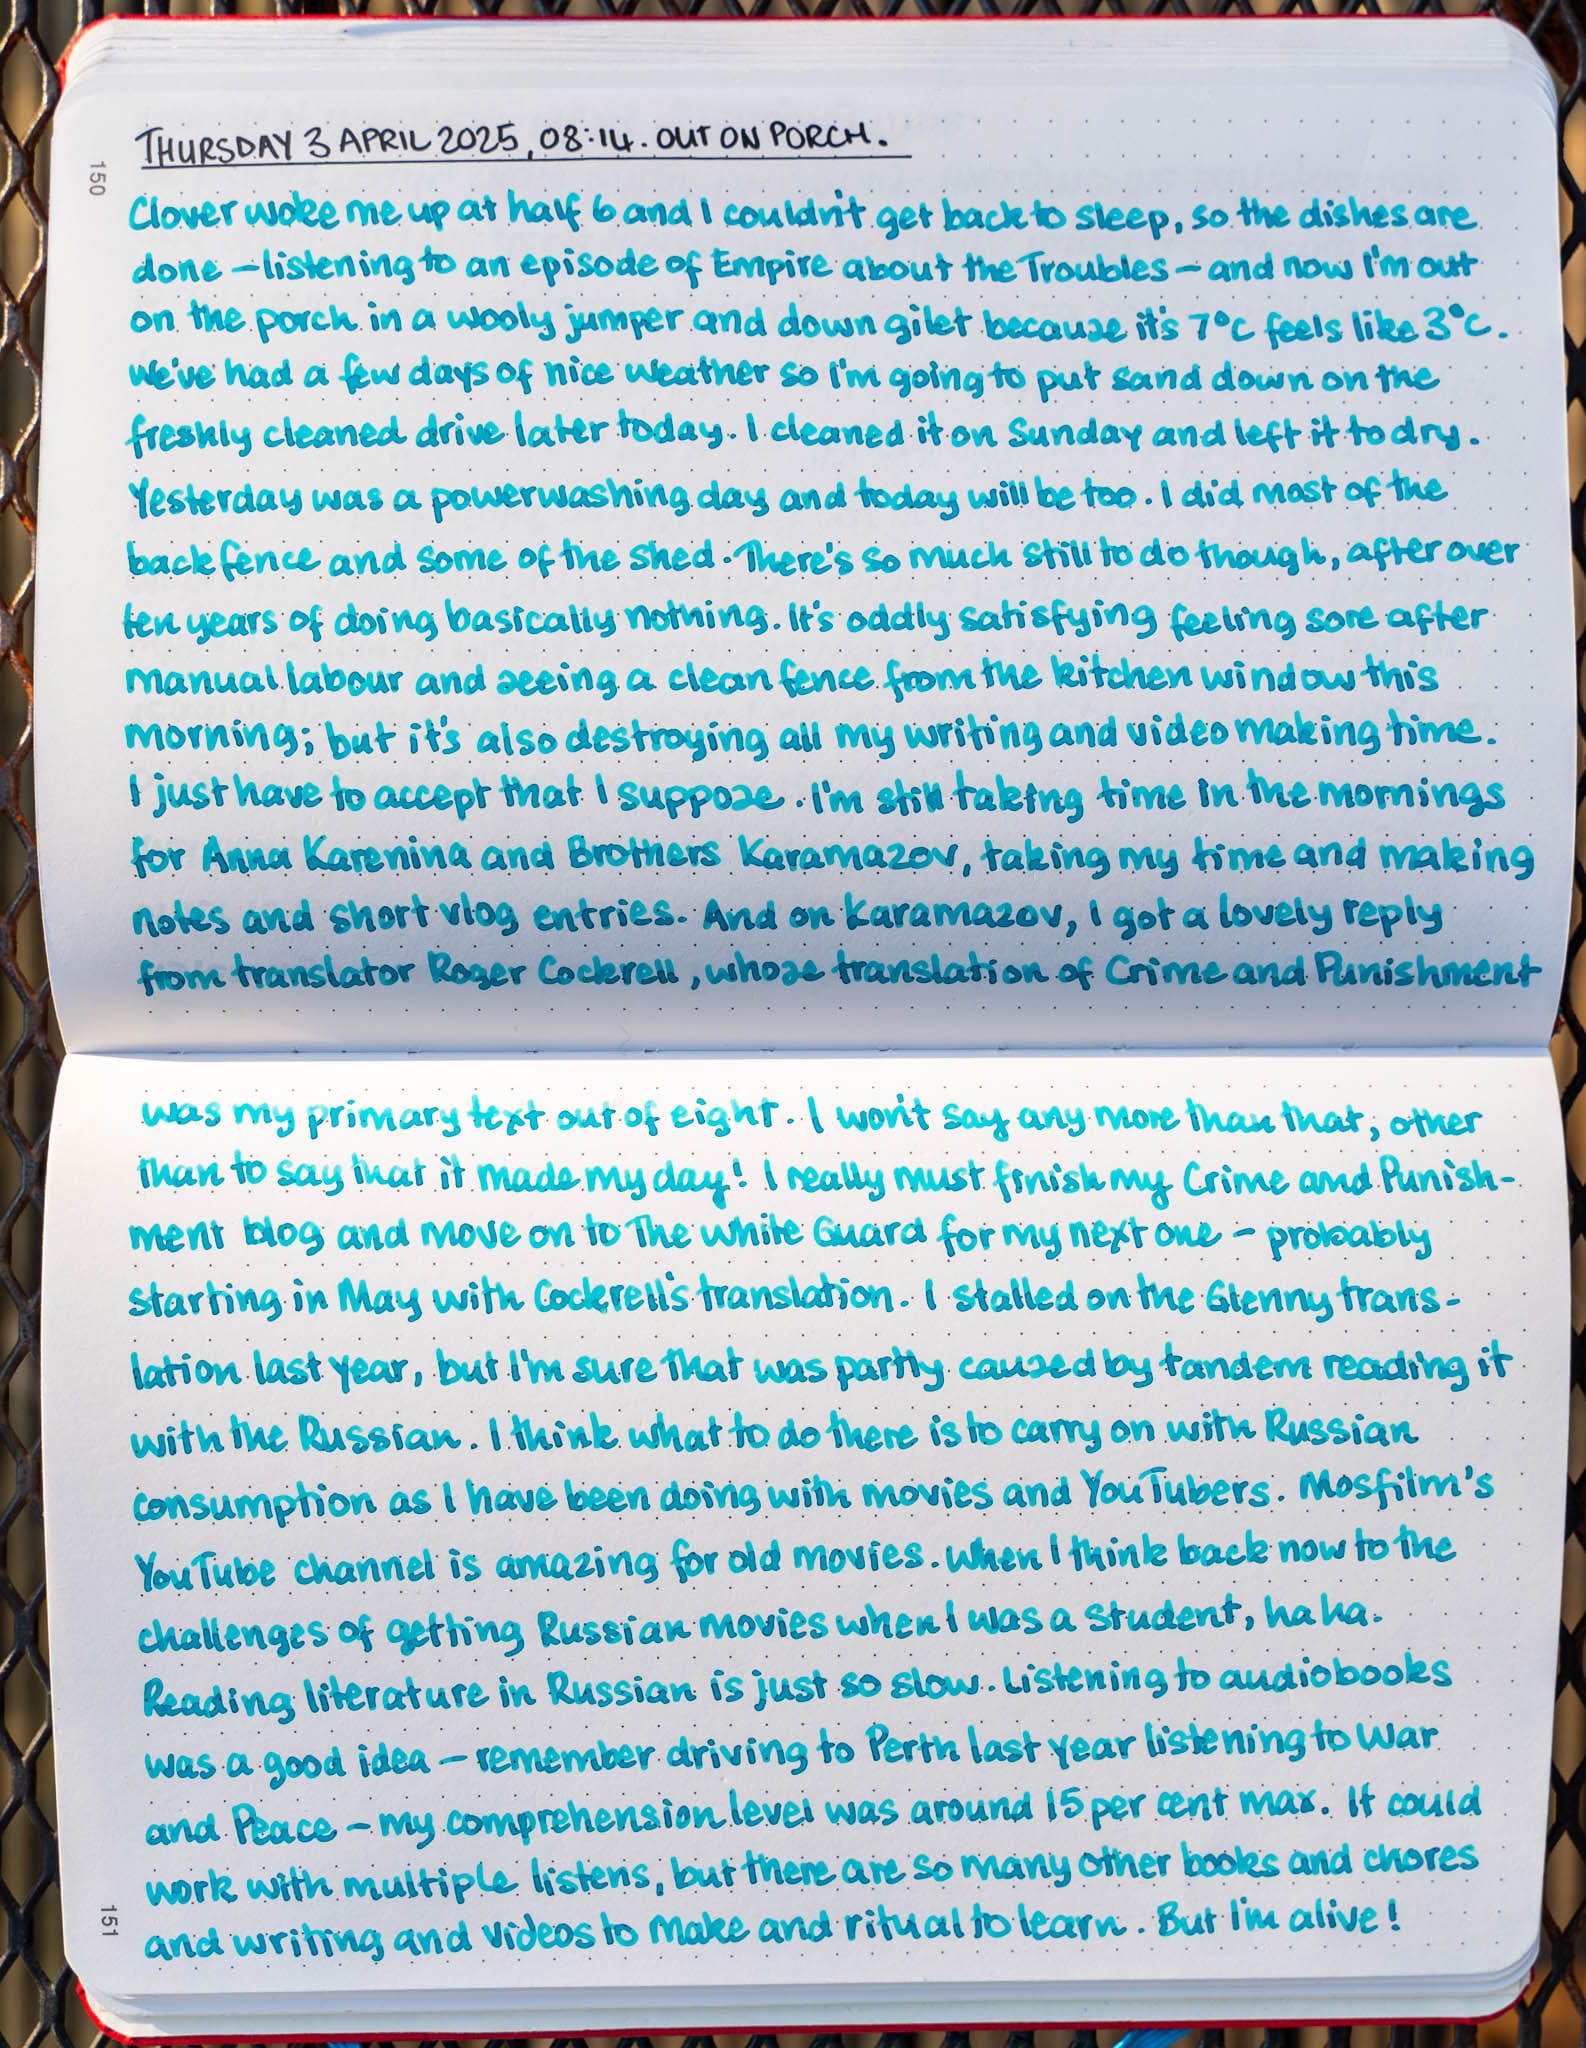 THURSDAY 3 APRIL 2025, 08:14. OUT ON PORCH.
150
Clover woke me up at half 6 and I couldn't get back to sleep, so the dishes are
done – listening to an episode of Empire about the Troubles – and now I'm out
on the porch in a wooly jumper and down gilet because it's 7°C feels like 3°C.
We've had a few days of nice weather so I'm going to put sand down on the
freshly cleaned drive later today. I cleaned it on Sunday and left it to dry.
Yesterday was a powerwashing day and today will be too. I did most of the
back fence and some of the shed. There's so much still to do though, after over
ten years of doing basically nothing. It's oddly satisfying feeling sore after
manual labour and seeing a clean fence from the kitchen window this
morning; but it's also destroying all my writing and video making time.
I just have to accept that I suppose. I'm still taking time in the mornings
for Anna Karenina and Brothers Karamazov, taking my time and making
notes and short vlog entries. And on Karamazov, I got a lovely reply
from translator Roger Cockrell, whose translation of Crime and Punishment
was my primary text out of eight. I won't say any more than that, other
than to say that it made my day! I really must finish my Crime and Punish-
ment blog and move on to The White Guard for my next one – probably
starting in May with Cockrell's translation. I stalled on the Glenny trans-
lation last year, but I'm sure that was partly caused by tandem reading it
with the Russian. I think what to do there is to carry on with Russian
consumption as I have been doing with movies and YouTubers. Mosfilm's
YouTube channel is amazing for old movies. When I think back now to the
challenges of getting Russian movies when I was a student, ha ha.
Reading literature in Russian is just so slow. Listening to audiobooks
was a good idea – remember driving to Perth last year listening to War
and Peace – my comprehension level was around 15 per cent max. It could
work with multiple listens, but there are so many other books and chores
and writing and videos to make and ritual to learn. But I'm alive!
151